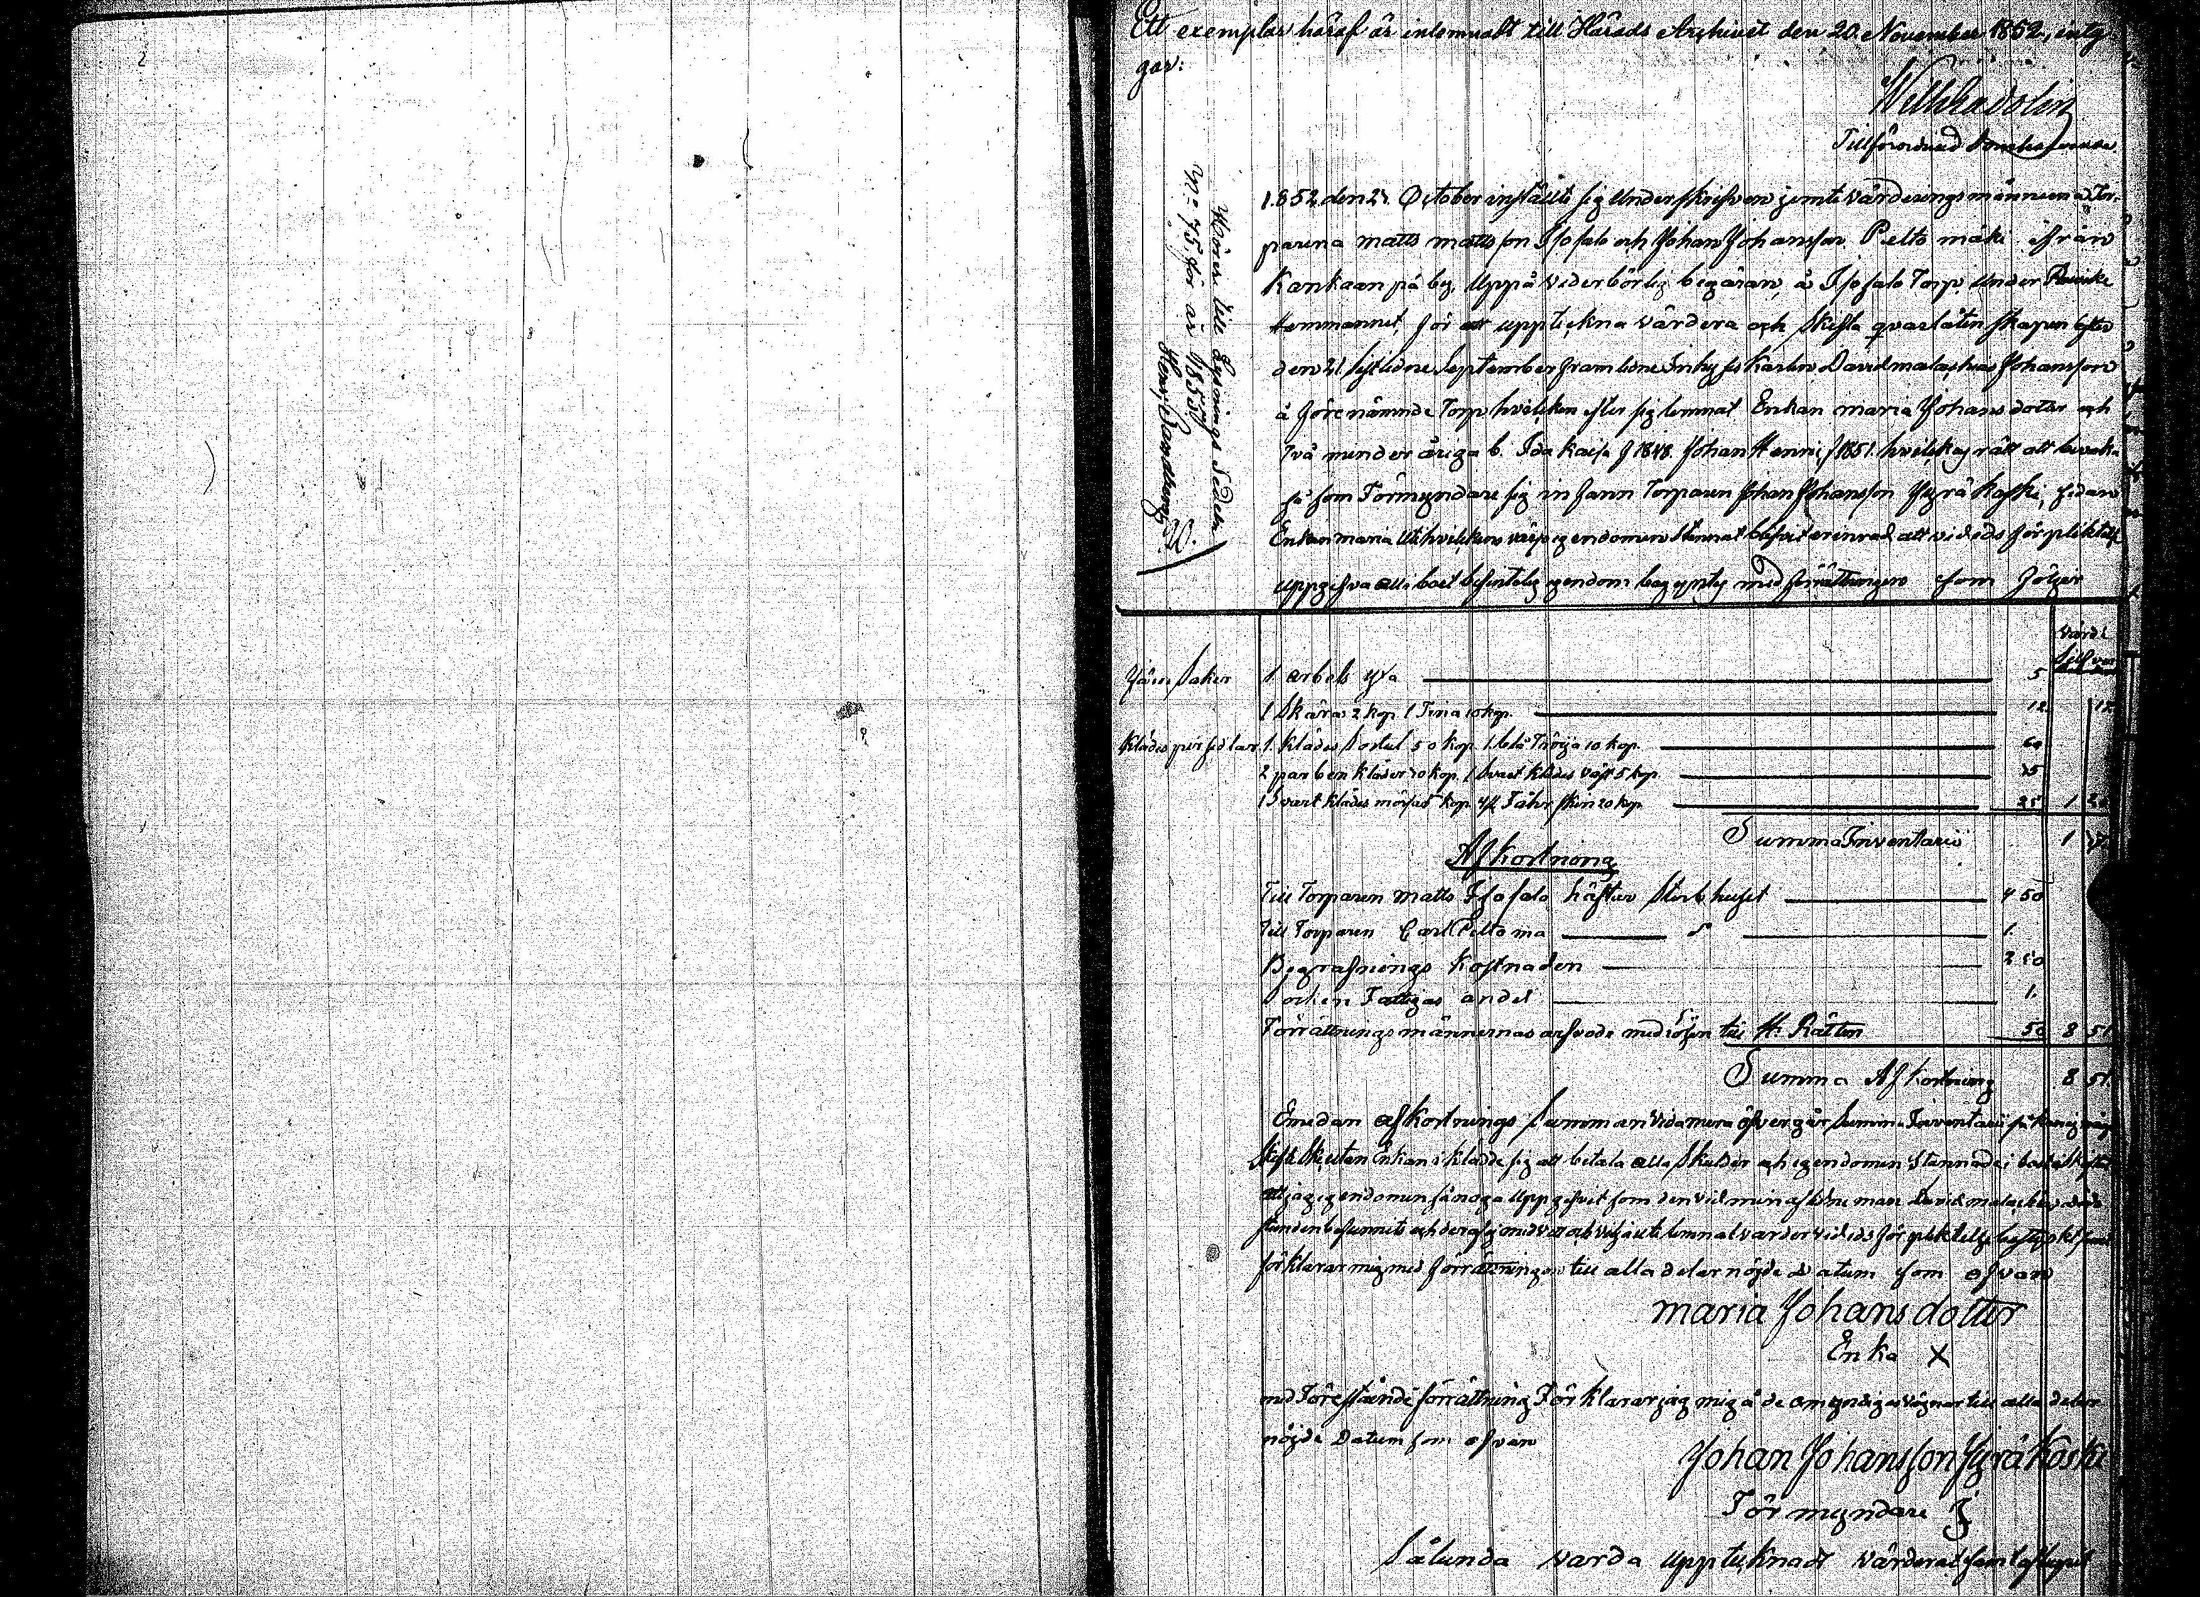 Ett exemplar häraf är inlemnadt till Härads Archivet den 20 November 1852, inty
gar:
Tillförordnad Domhafvande
Hörer till Lysnings Sedeln
No 75 för år 1852
1852 den 21 October inställte sig Underskrifven jemte värderingsmännerna Tor-
parena matts mattsson Isosalo och Johan Johansson Peltomäki ifrån
Kankaanpä by, Uppå vederbörlig begäran, å Isosalo Torp under
Hemmannet, för att uppteckna värdera och skifta qvarlåtenskapen efter
den 21 sistledne September framledne Inhyses Karlen David malachias Johansson
å förenämnde Torp hvilcken efter sig lemnat Enkan maria Johansdotter och
Två minderåriga b. Ida Kaisa f 1848. Johan Henric f 1851. hvilckas rätt att bevaka
så som Förmyndare sig infann Torparen Johan Johansson Jyräkoski, sedan
Enkan maria uti hvilckens värjo egendomen stannat blifvit erinrad att vid eds förpliktelse
uppgifva all i boet befintelig egendom begyntes med förrättningen som följer
Värde
Silfver
Järn Saker 1 arbets yxa 5
1 Skära 2 kop. 1 Tina 10 kop. 12 17
Klädes persedlar 1 Klädes Sortut 50 kop. 1 blå Tröija 10 kop. 60
2 par benkläder 10 kop. 1 Svart klädes väst 5 kop. 15
1 Svart klädes mössa 5 kop. 4/2 Fåhrskin 20 kop. 25 1
Summa Inventarii 1 17
Afkortning
Till Torparen Matts Isosalo häftar Sterbhuset 4 50
Till Torparen Carl Peltoma d:o 1.
Begrafnings Kostnaden 2 50
Socken Fattigas andel 1.
Förrättningsmännernas arfvode med lösen till H. Rätten 50 8 51
Summa Afkortning 8 51.
Emedan afkortnings Summan vida mera öfvergår Summa Inventarii så kan ej någon
Skifte Ske utan Enkan iklädde sig att betala alla Skulder och egendomen Stannade i boet oskiftad
att jag egendomen så noga uppgifvit som den vid min aflidne man David malachias döds
stunden befunnits och deraf ej med vett och vilja utelemnat varder vid eds förpliktelse bestyrkt samt
förklarar mig med förrättningen till alla delar nöjde Datum som ofvan
maria Johans dotter
Enka X
med Förestående förrättning Förklarar jag mig å de omyndigas vägnar till alla delar
nöjde Datum som ofvan
Johan Johansson Jyräkoski
Förmyndare J
Sålunda varda upptecknadt värderat samt aflupit